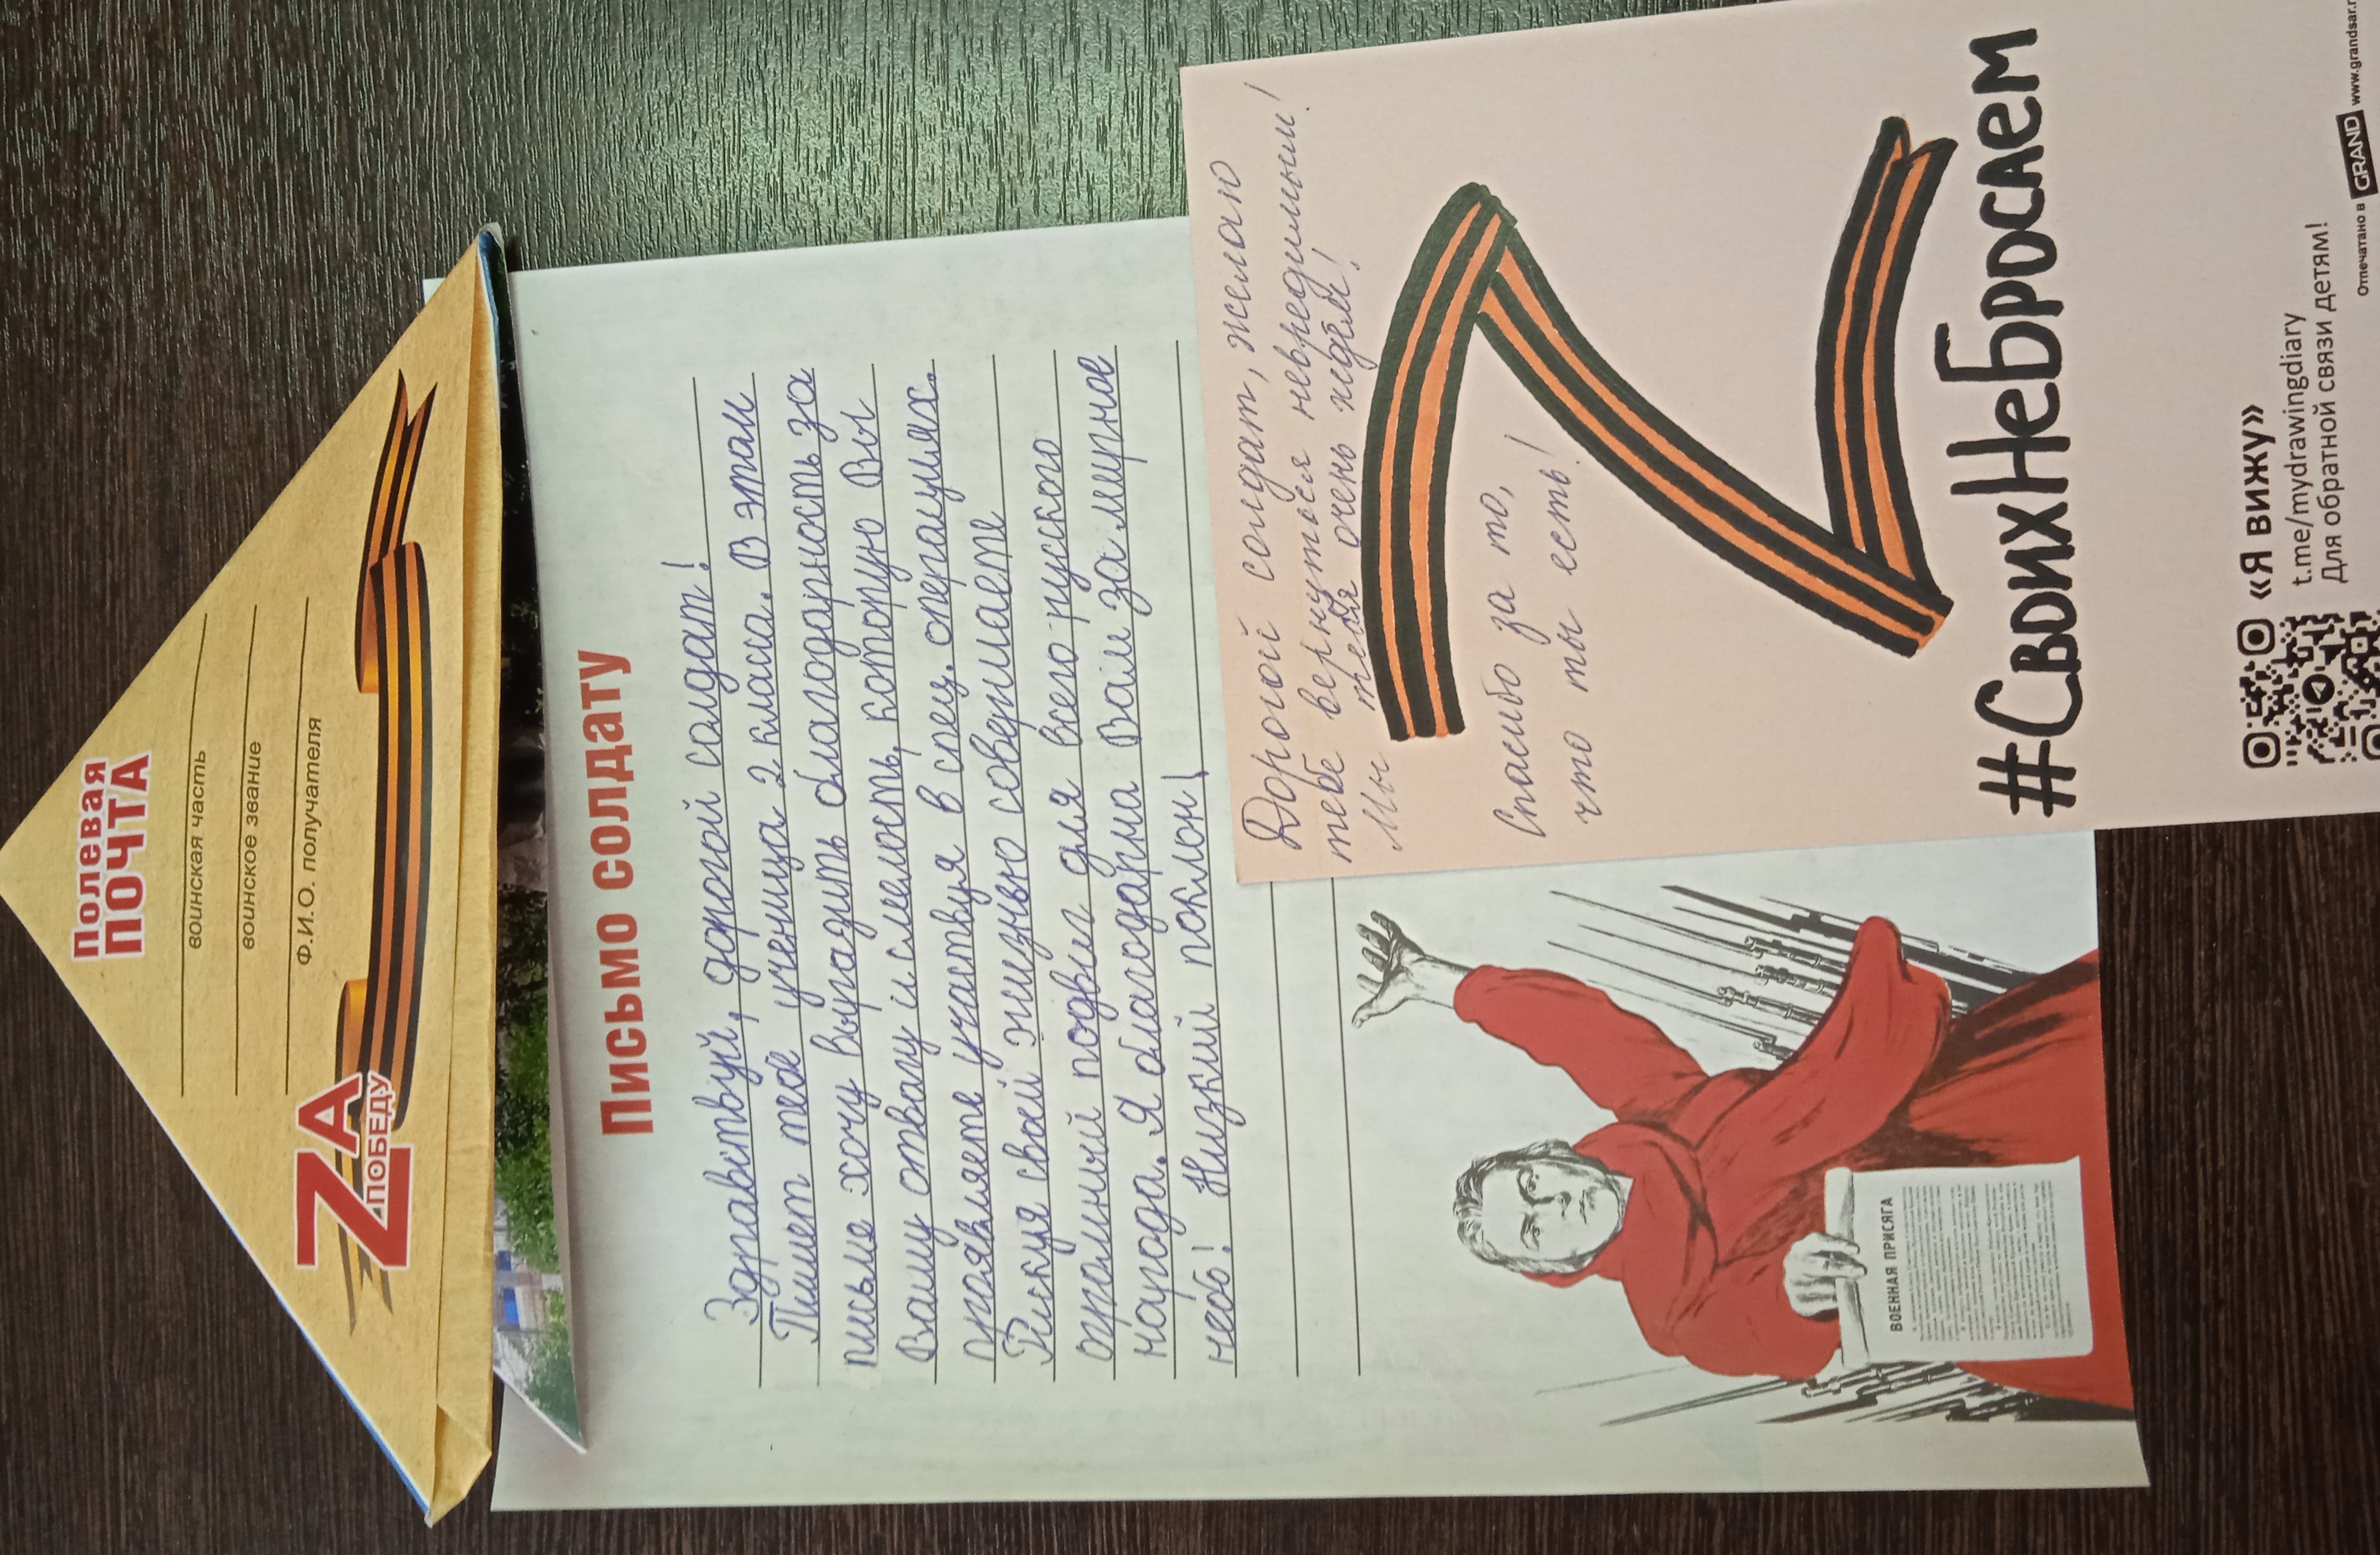 Полевая
ПОЧТА
воинская часть
воинское звание
Ф.И.О. получателя
ZА
ПОБЕДУ
Письмо солдату
Здравствуй, дорогой солдат!
Пишет тебе ученица 2 класса. В этом
письме хочу выразить благодарность за
Вашу отвагу и смелость, которую Вы
проявляете участвуя в спец. операциях.
Рискуя своей жизнью совершаете
огромный подвиг для всего русского
народа. Я благодарна Вам за мирное
небо! Низкий поклон!
ВОЕННАЯ ПРИСЯГА
Дорогой солдат, желаю
тебе вернуться невредимым!
Мы тебя очень ждём!
Спасибо за то,
что ты есть!
#СвоихНеБросаем
«Я вижу»
t.me/mydrawingdiary
Для обратной связи детям!
Отпечатано в GRAND www.grandsar.r